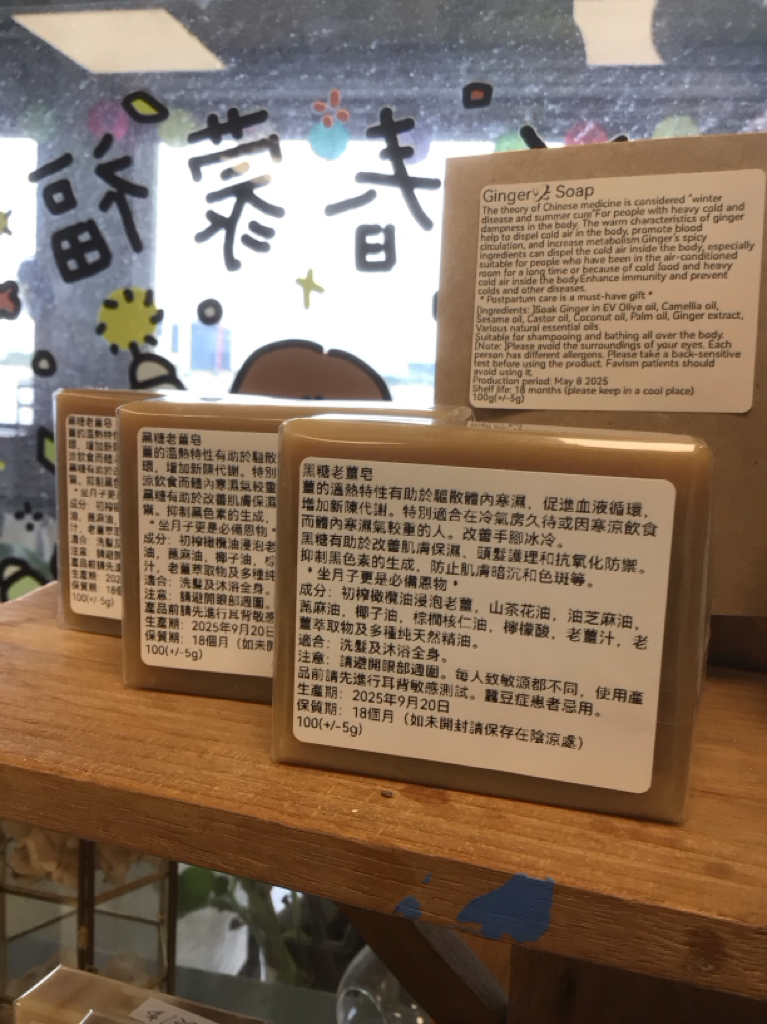 福蒙春
Ginger Soap
The theory of Chinese medicine is considered "winter
disease and summer cure"For people with heavy cold and
dampness in the body. The warm characteristics of ginger
help to dispel cold air in the body, promote blood
circulation, and increase metabolism.Ginger's spicy
ingredients can dispel the cold air inside the body, especially
suitable for people who have been in the air-conditioned
room for a long time or because of cold food and heavy
cold air inside the body.Enhance immunity and prevent
colds and other diseases.
* Postpartum care is a must-have gift *
[Ingredients: ]Soak Ginger in EV Olive oil, Camellia oil,
Sesame oil, Castor oil, Coconut oil, Palm oil, Ginger extract,
Various natural essential oils
Suitable for shampooing and bathing all over the body.
[Note: ]Please avoid the surroundings of your eyes. Each
person has different allergens. Please take a back-sensitive
test before using the product. Favism patients should
avoid using it.
Production period: May 8 2025
Shelf life: 18 months (please keep in a cool place)
100g(+/-5g)
黑糖老薑
薑的溫熱特
環，增加新
涼飲食而體
黑糖有助於
質，抑制黑
*坐月子更
成分：初榨
油，蓖麻油
汁，老薑
適合：洗
注意：請
產品前請先
生產期：202
保質期：18
100(+/-5g)
黑糖老薑皂
薑的溫熱特性有助於驅散
環，增加新陳代謝。特別
涼飲食而體內寒濕氣較重
黑糖有助於改善肌膚保濕
禦。抑制黑色素的生成，
*坐月子更是必備恩物*
成分：初榨橄欖油浸泡老
油，蓖麻油，椰子油，棕
汁，老薑萃取物及多種純
適合：洗髮及沐浴全身。
注意：請避開眼部週圍。
產品前請先進行耳背敏感
生產期：2025年9月20日
保質期：18個月（如未開
100(+/-5g)
黑糖老薑皂
薑的溫熱特性有助於驅散體內寒濕，促進血液循環，
增加新陳代謝。特別適合在冷氣房久待或因寒涼飲食
而體內寒濕氣較重的人。改善手腳冰冷。
黑糖有助於改善肌膚保濕、頭髮護理和抗氧化防禦。
抑制黑色素的生成，防止肌膚暗沉和色斑等。
*坐月子更是必備恩物*
成分：初榨橄欖油浸泡老薑，山茶花油，油芝麻油，
蓖麻油，椰子油，棕櫚核仁油，檸檬酸，老薑汁，老
薑萃取物及多種純天然精油。
適合：洗髮及沐浴全身。
注意：請避開眼部週圍。每人致敏源都不同，使用產
品前請先進行耳背敏感測試。蠶豆症患者忌用。
生產期：2025年9月20日
保質期：18個月（如未開封請保存在陰涼處）
100(+/-5g)